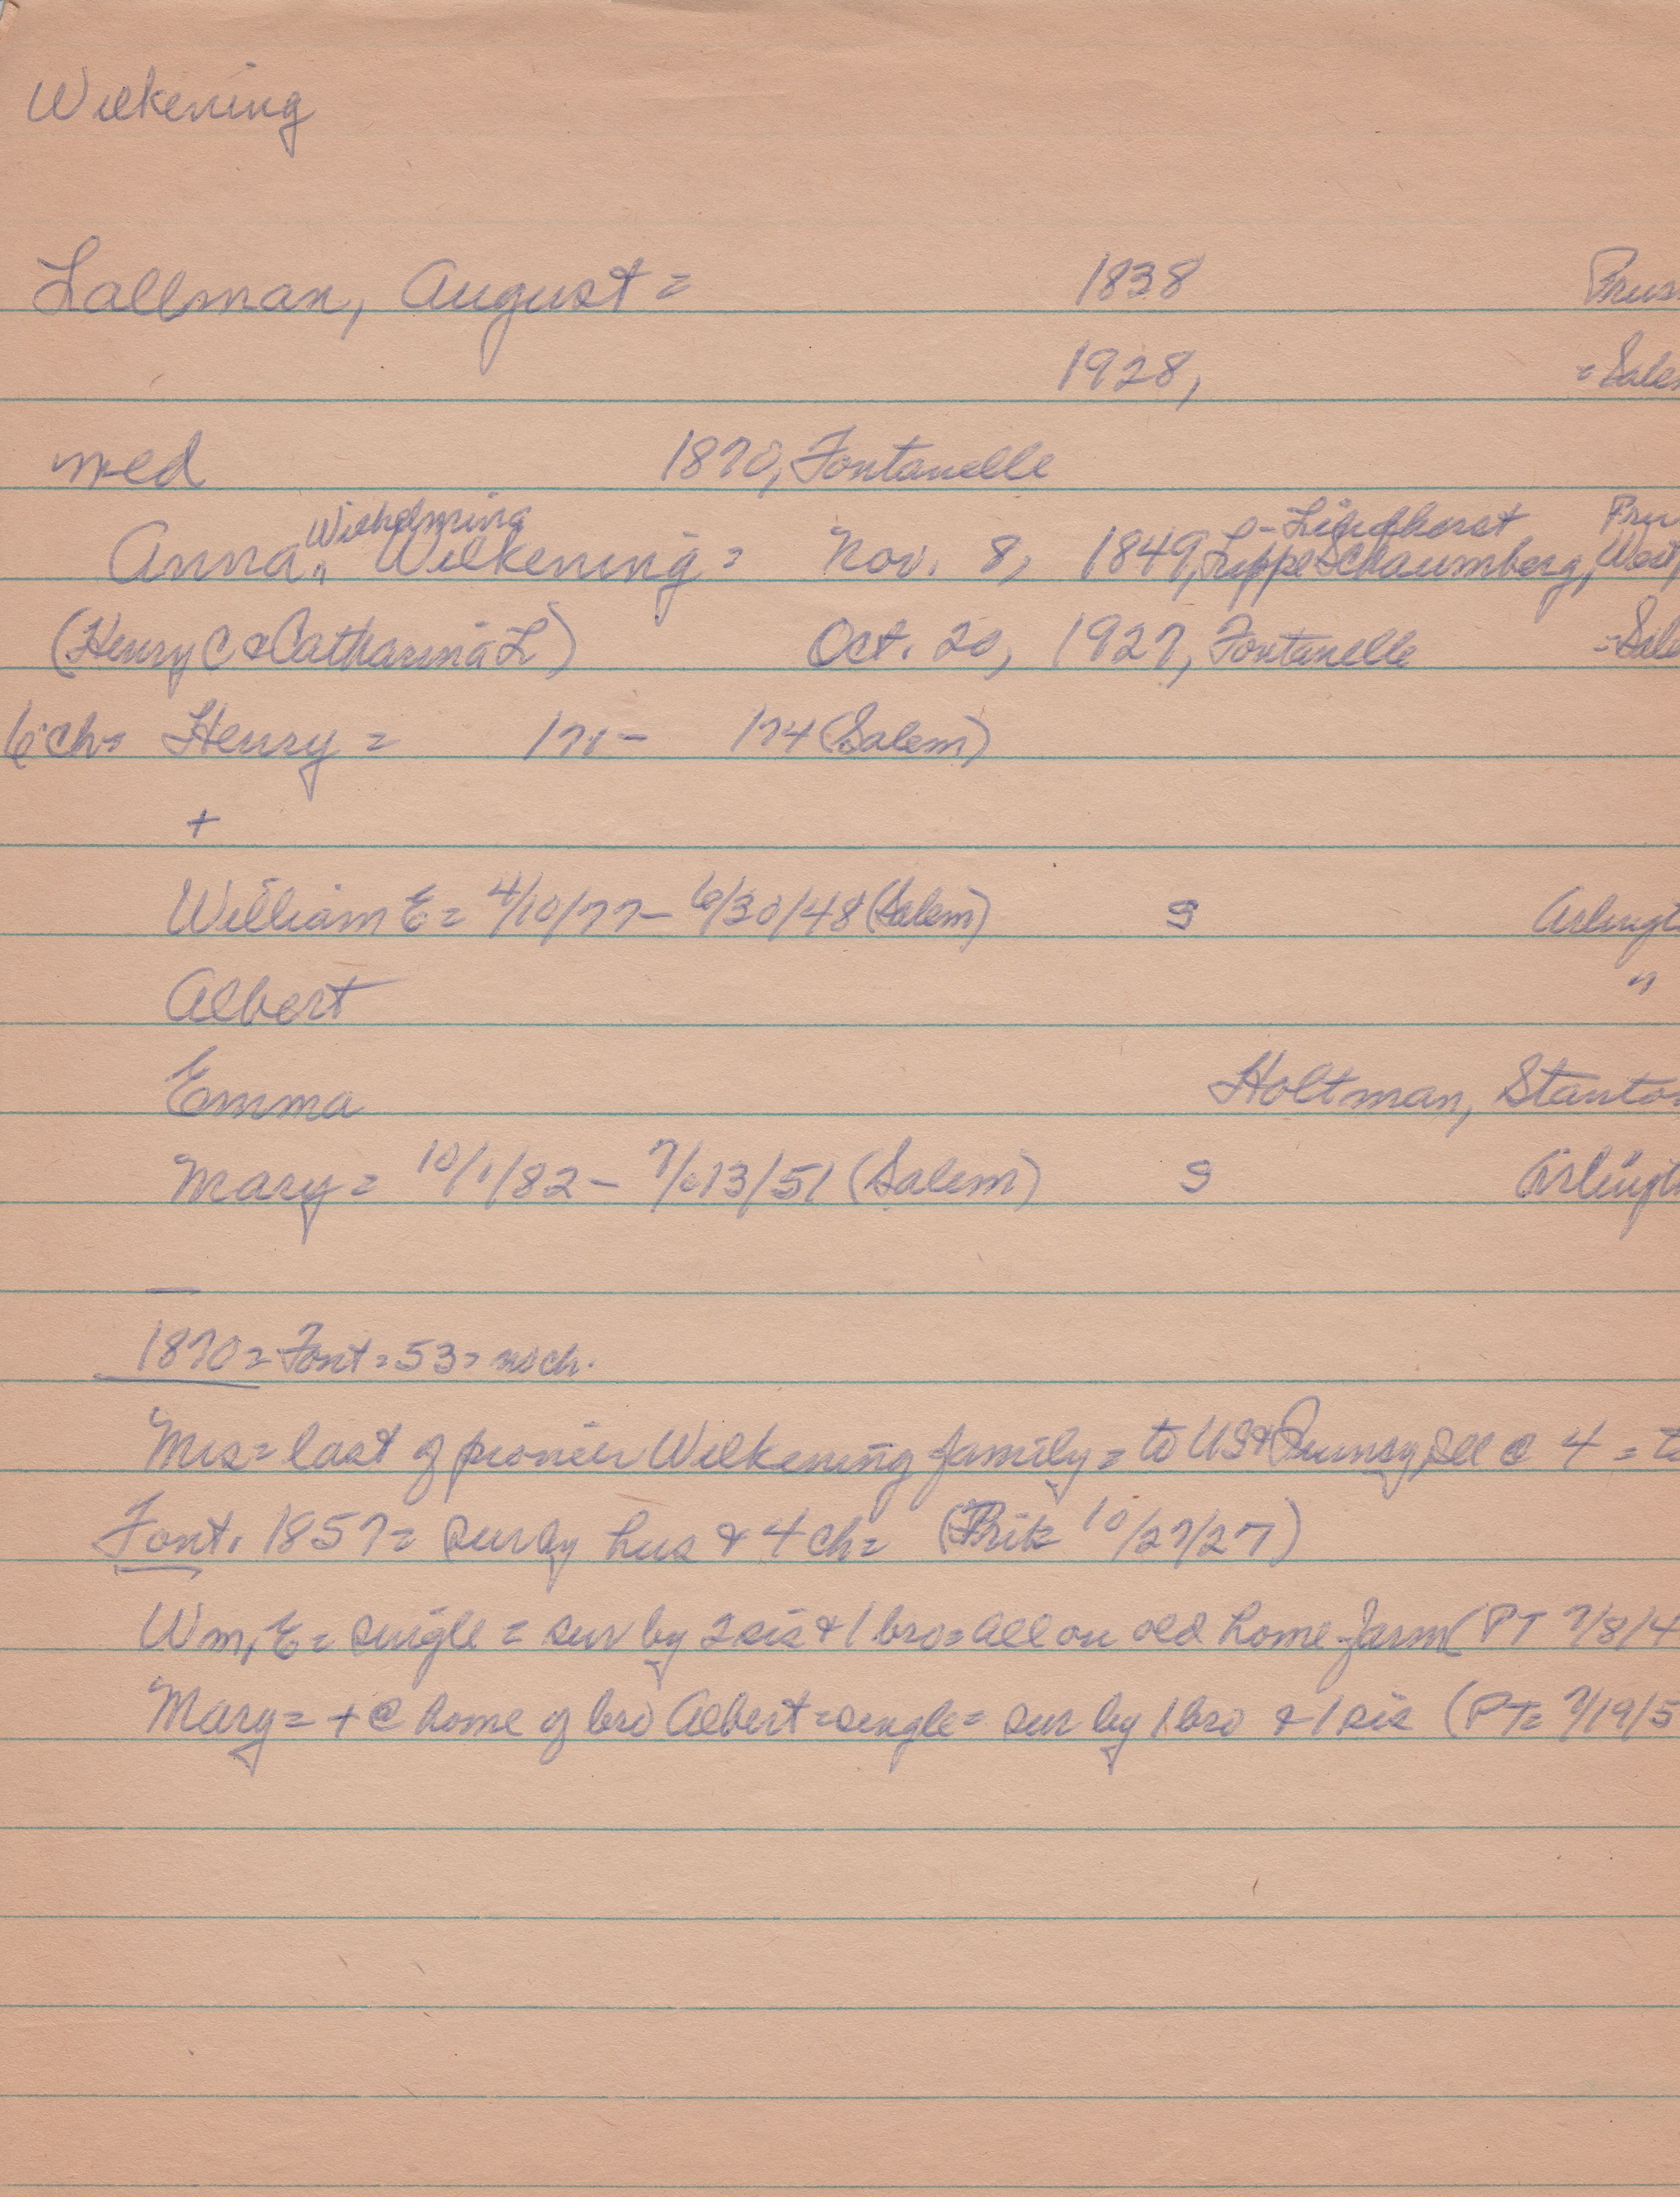 Wilkening
Lallman, August = 1838 Prus
1928, = Salem
med 1870, Fontanelle
Wilhelmina L- Lindhorst Pru
Anna " Wilkening = Nov. 8, 1849, Lippe Schaumberg, West,
(Henry C & Catharina L) Oct. 20, 1927, Fontanelle = Sale
6 ch = Henry = /71 - /74 (Salem)
+
William E = 4/10/77 - 6/30/48 (Salem) S Arlingt
Albert "
Emma Holtman, Stanto
Mary = 10/1/82 - 7/13/51 (Salem) S Arlingt
—
1870 = Font = 53 = no ch.
Mrs = last of pioneer Wilkening family = to US & Ill @ 4 = to
Font. 1857 = sur by hus & 4 ch = (Trib 10/27/27)
Wm, E = single = sur by 2 sis & 1 bro = all on old home farm (PT 7/8/4
Mary = + @ home of bro Albert = single = sur by 1 bro & 1 sis (PT = 7/19/5